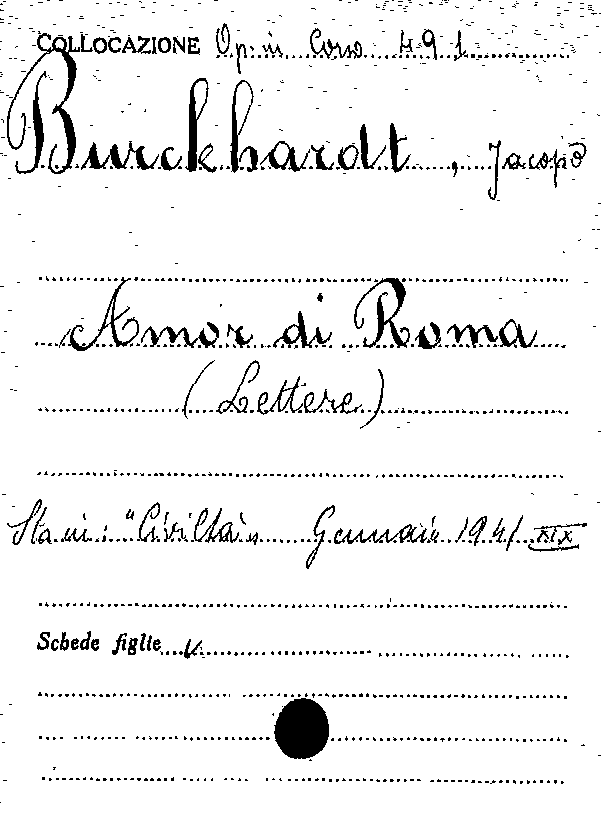 COLLOCAZIONE Op. in Corso 491
Burckhardt, Jacopo
Amor di Roma
(Lettere)
Sta in: "Civiltà„ Gennaio 1941 XIX
Schede figlie